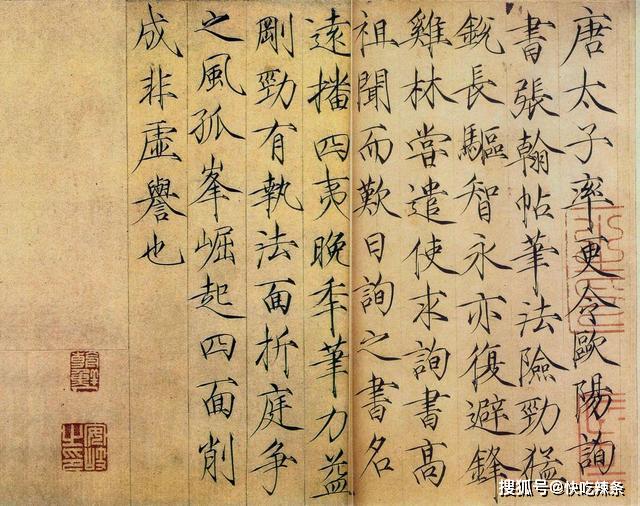 唐太子率更令歐陽詢
書張翰帖筆法險勁猛
銳長驅智永亦復避鋒
雞林嘗遣使求詢書高
祖聞而歎曰詢之書名
遠播四夷晚年筆力益
剛勁有執法面折庭爭
之風孤峯崛起四面削
成非虛譽也
搜狐号@快吃辣条